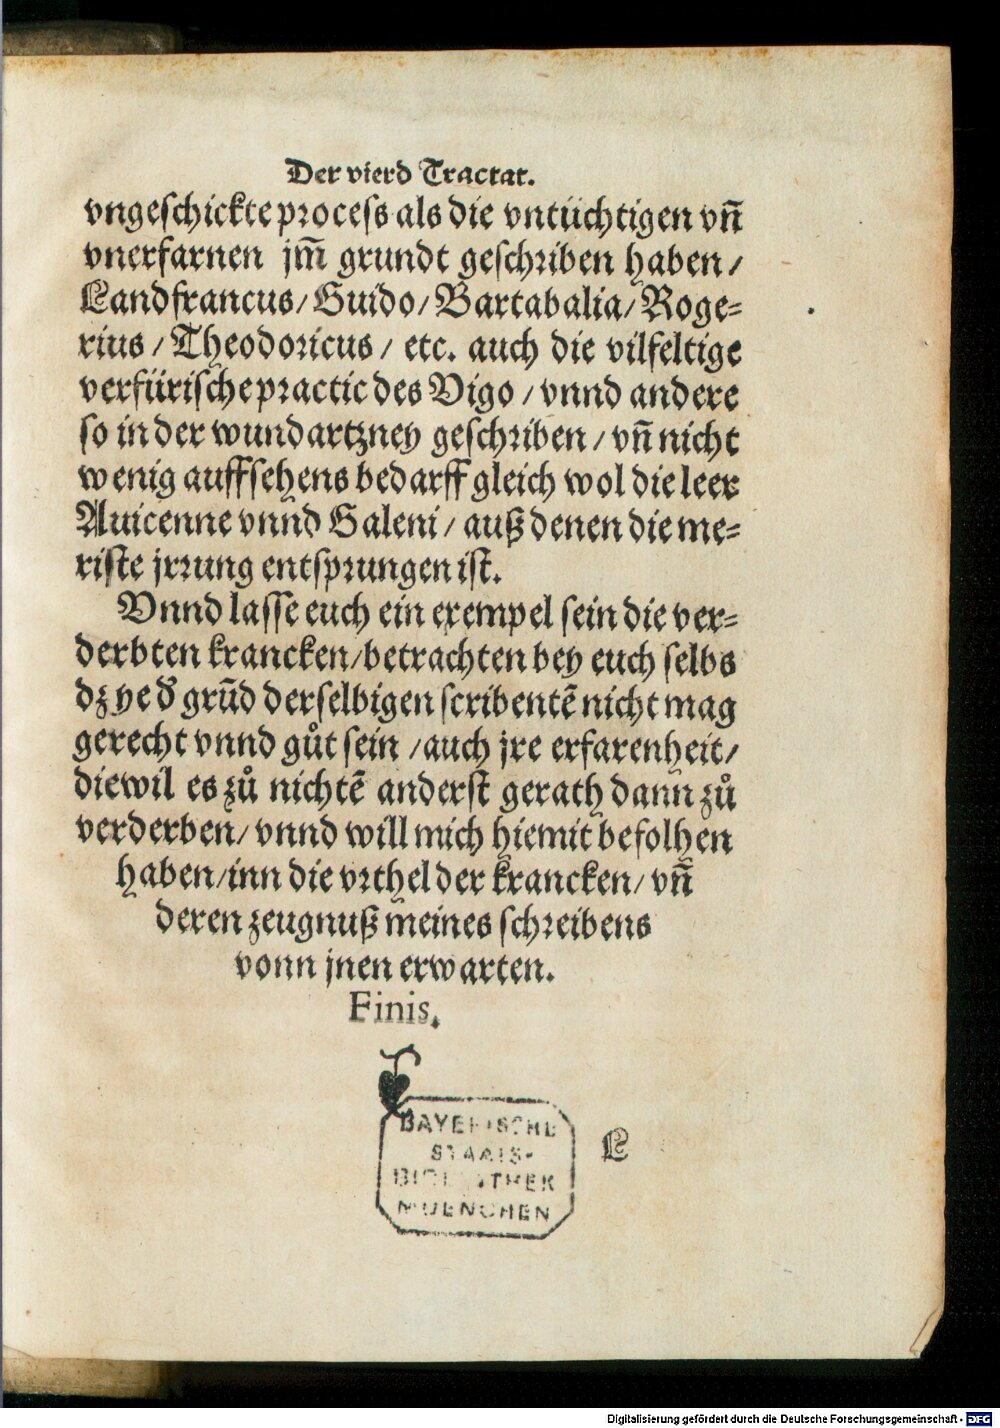 Der vierd Tractat.
vngeschickte process als die vntüchtigen vñ
vnerfarnen jm̃ grundt geschriben haben /
Landfrancus / Guido / Bartabalia / Roge⸗
rius / Theodoricus / etc. auch die vilfeltige
verfürische practic des Vigo / vnnd andere
so in der wundartzney geschriben / vñ nicht
wenig auffsehens bedarff gleich wol die leer
Auicenne vnnd Galeni / auß denen die me⸗
riste jrrung entsprungen ist.
Vnnd lasse euch ein exempel sein die ver⸗
derbten krancken / betrachten bey euch selbs
dz ye d̕ grũd derselbigen scribentẽ nicht mag
gerecht vnnd gůt sein / auch jre erfarenheit /
diewil es zů nichtẽ anderst gerath dann zů
verderben / vnnd will mich hiemit befolhen
haben / inn die vrthel der krancken / vñ
deren zeugnuß meines schreibens
vonn jnen erwarten.
Finis.
L
BAYERISCHE
STAATS-
BIBLIOTHEK
MUENCHEN
Digitalisierung gefördert durch die Deutsche Forschungsgemeinschaft - DFG